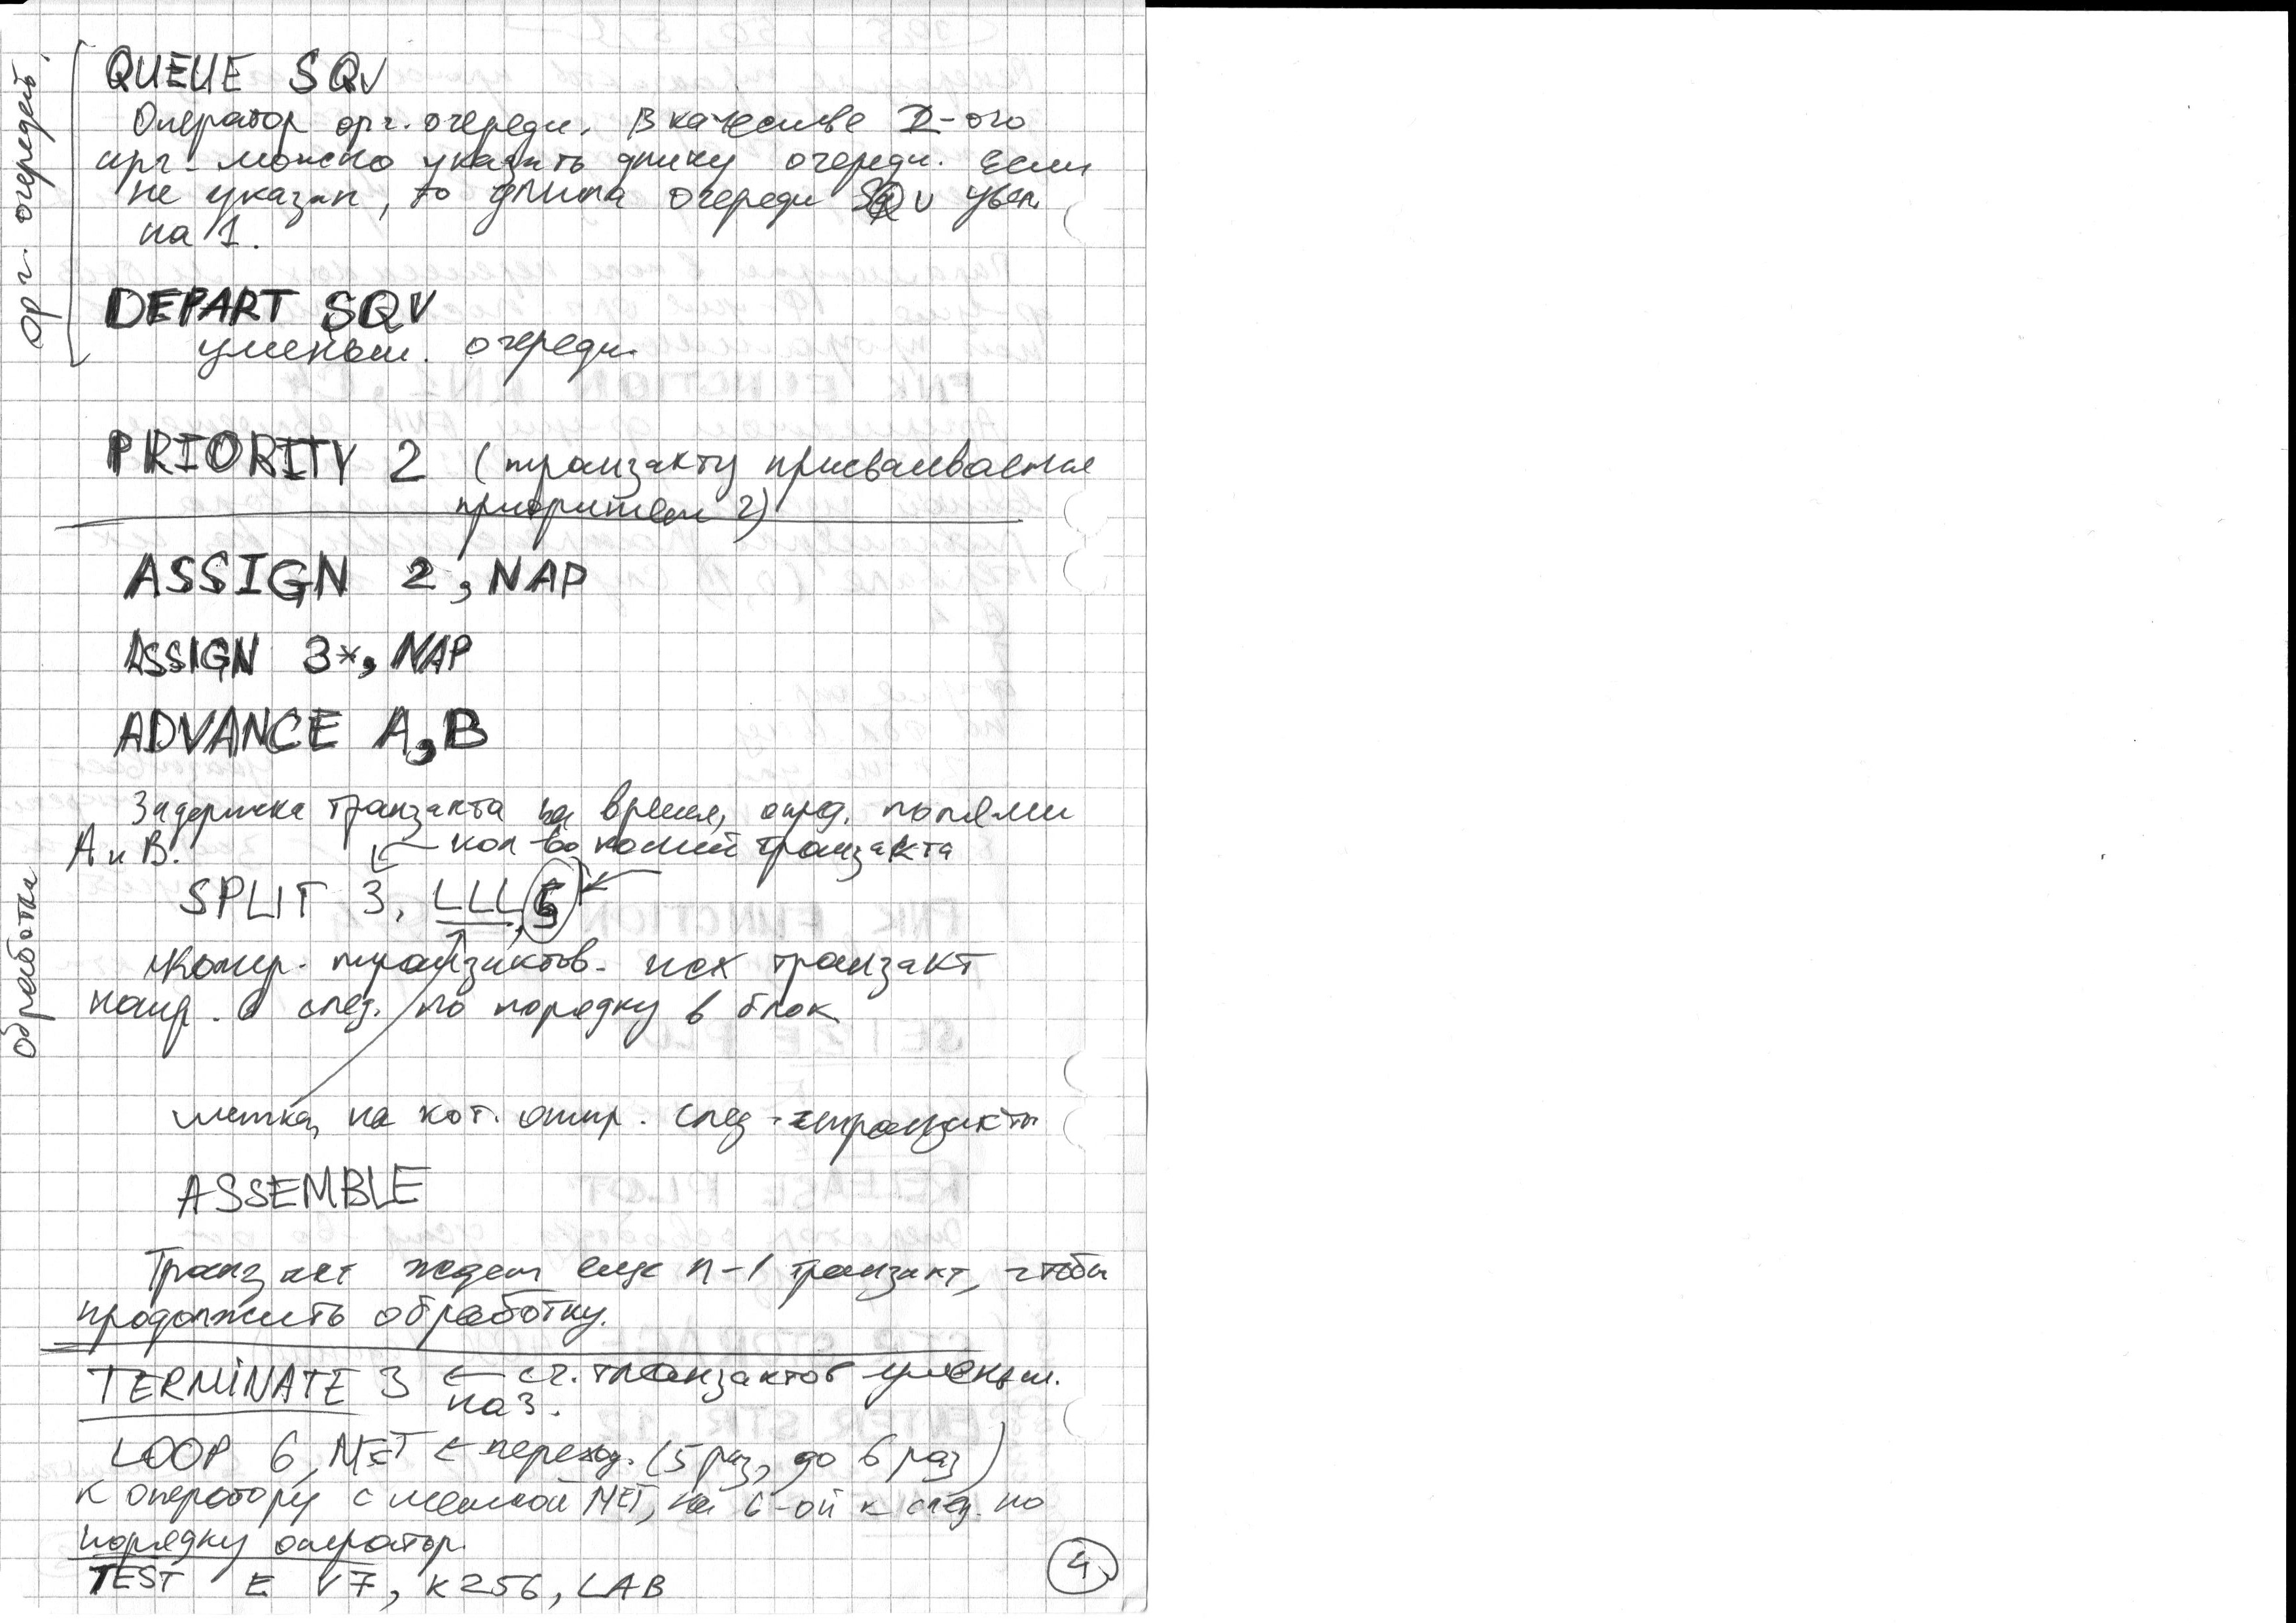 орг. очередей.
QUEUE SQV
Оператор орг. очереди. В качестве 2-ого
арг. можно указать длину очереди. Если
не указан, то длина очереди SQV увел.
на 1.
DEPART SQV
уменьш. очереди.
PRIORITY 2 (транзакту присваивается
приоритет 2)
ASSIGN 2, NAP
ASSIGN 3*, NAP
ADVANCE A,B
Задержка транзакта на время, опред. полями
А и В.
кол-во копий транзакта
обработка
SPLIT 3, LLL, 5
копир. транзактов. исх транзакт
напр. в след. по порядку в блок
метка, на кот. отпр. след. транзакты
ASSEMBLE
Транзакт ждет еще n-1 транзакт, чтобы
продолжить обработку.
TERMINATE 3 ← сч. транзактов уменьш.
на 3.
LOOP 6, MET ← переход. (5 раз, до 6 раз)
к оператору с меткой MET, на 6-ой к след. по
порядку оператор.
TEST E V7, K256, LAB
4